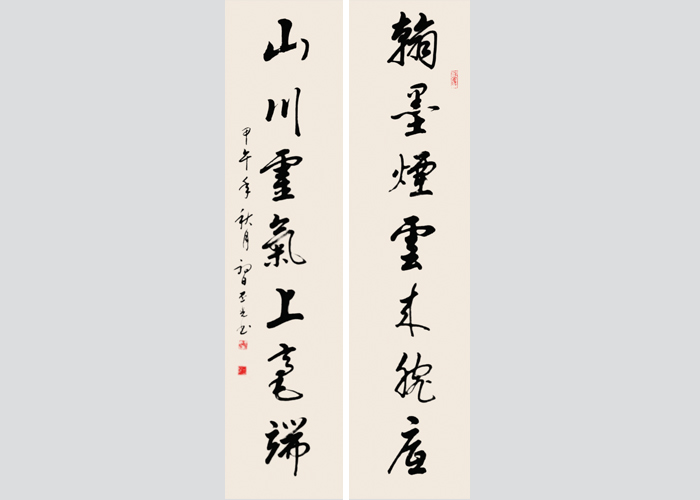 翰墨煙雲来腕底
山川靈氣上毫端
甲午年秋月